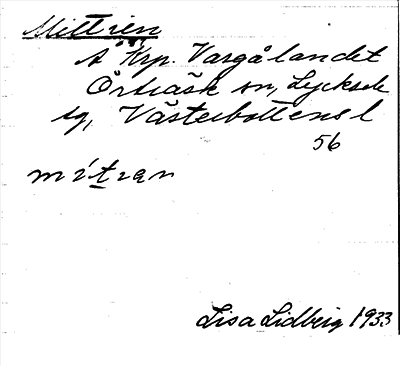 Mittrien
Å Krp. Vargålandet
Örträsk sn, Lycksele
sg, Västerbottens l
56
mítran
Lisa Lidberg 1933